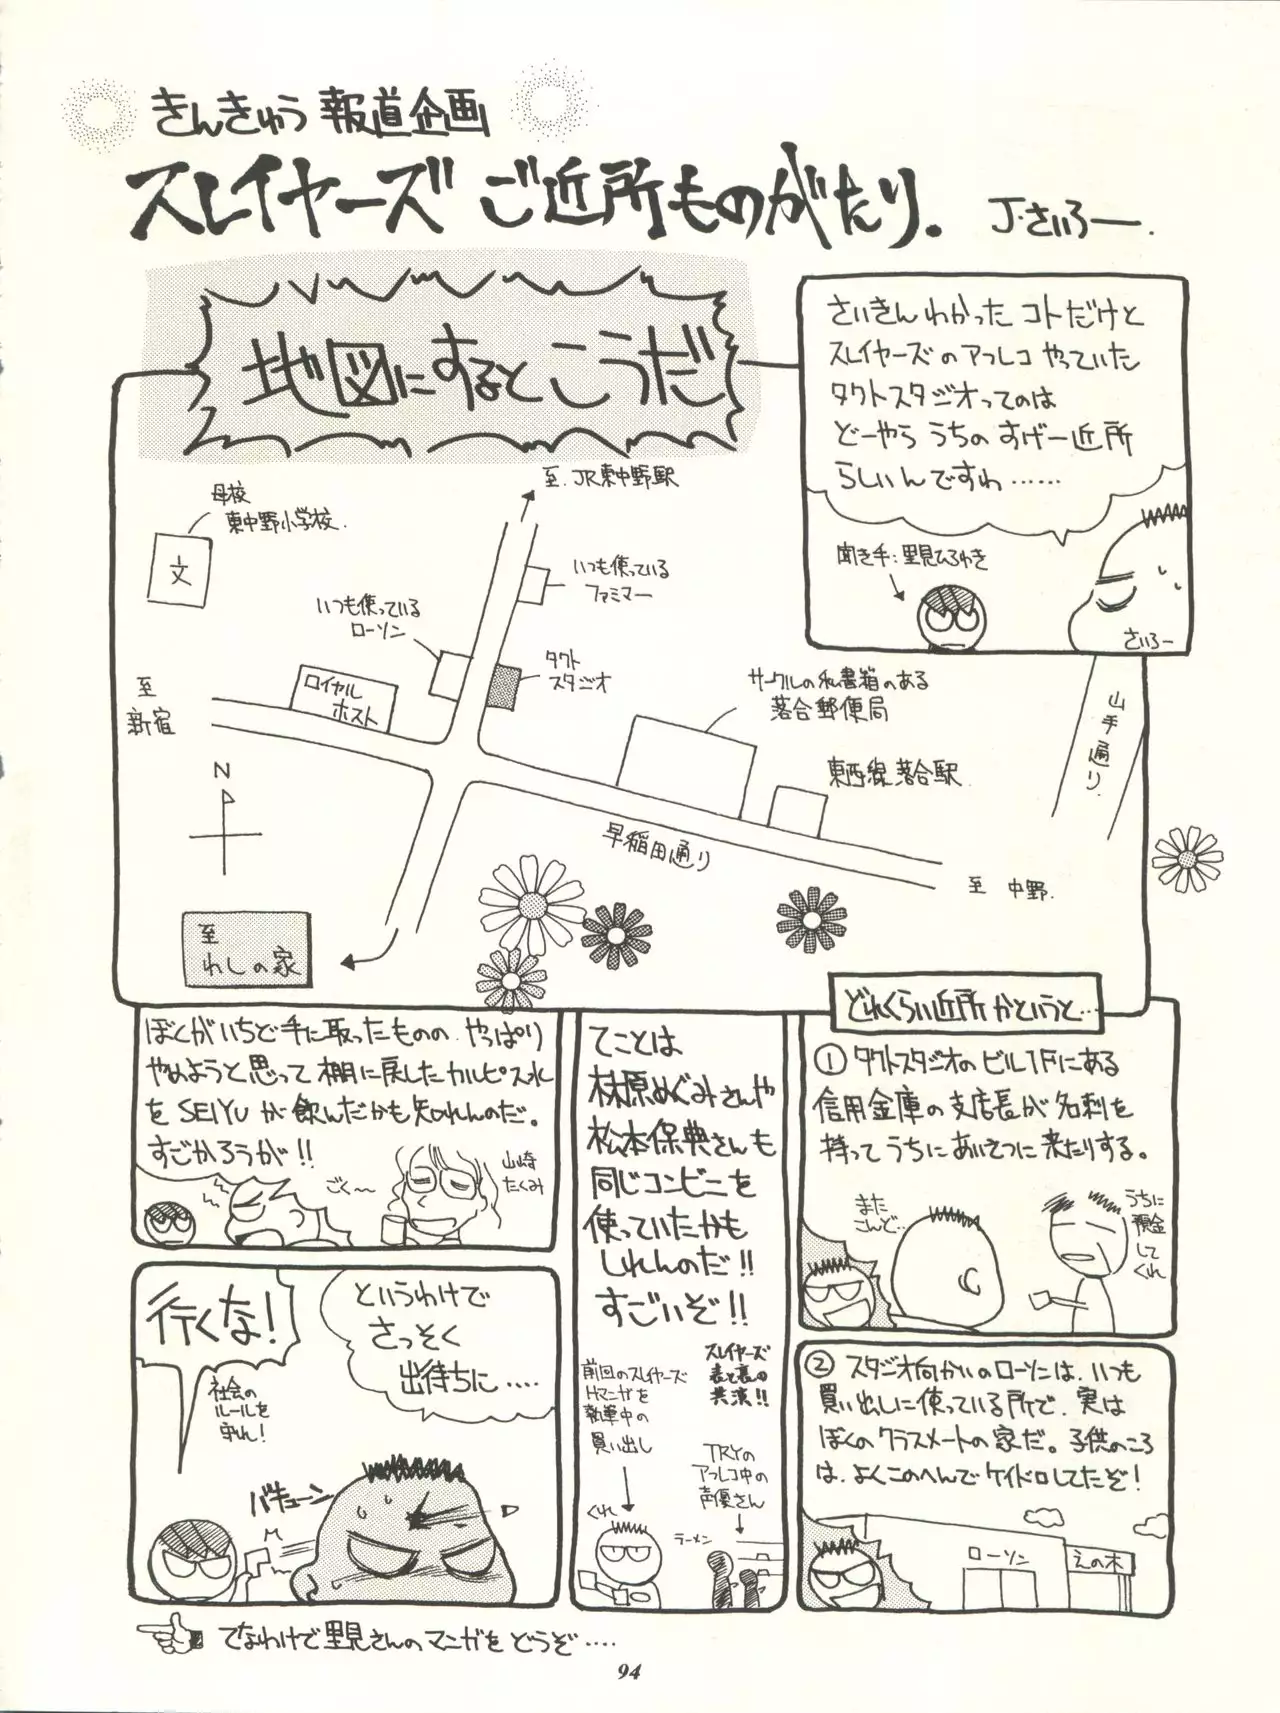 きんきゅう 報道企画
スレイヤーズ ご近所ものがたり.
J・さいろー.
地図にするとこうだ
さいきんわかった コトだけと
スレイヤーズ のアフレコ やっていた
タクトスタジオってのは
どーやら うちの すげー近所
らしいんですわ……
聞き手:里見ひろゆき
さいろー
至.JR東中野駅
母校
東中野小学校.
文
いつも使っている
ファミマー
いつも使っている
ローソン
タクト
スタジオ
ロイヤル
ホスト
至
新宿
サークルの私書箱のある
落合郵便局
東西線落合駅.
山手通り.
早稲田通り
至 中野.
N
至
わしの家
どれくらい近所かというと…
① タクトスタジオの ビル1Fにある
信用金庫の支店長が名刺を
持って うちに あいさつに 来たりする。
また
こんど…
うちに
預金
して
くれ
② スタジオ向かいのローソンは、いつも
買い出しに使っている所で、実は
ぼくのクラスメートの家だ。子供のころ
は、よくこのへんでケイドロしてたぞ!
ローソン
えの木
てことは
林原めぐみさんや
松本保典さんも
同じコンビニを
使っていたかも
しれんのだ!!
すごいぞ!!
スレイヤーズ
表と裏の
共演!!
前回のスレイヤーズ
Hマンガを
執筆中の
買い出し
TRYの
アフレコ中の
声優さん
くれ
ラーメン
ぼくがいちど手に取ったものの やっぱり
やめようと思って棚に戻したカルピス水
を SEIYUが飲んだかも知れんのだ。
すごかろうが!!
ごく〜
山崎
たくみ
というわけで
さっそく
出待ちに....
行くな!
社会の
ルールを
守れ!
バキューン
でなわけで里見さんのマンガを どうぞ....
94